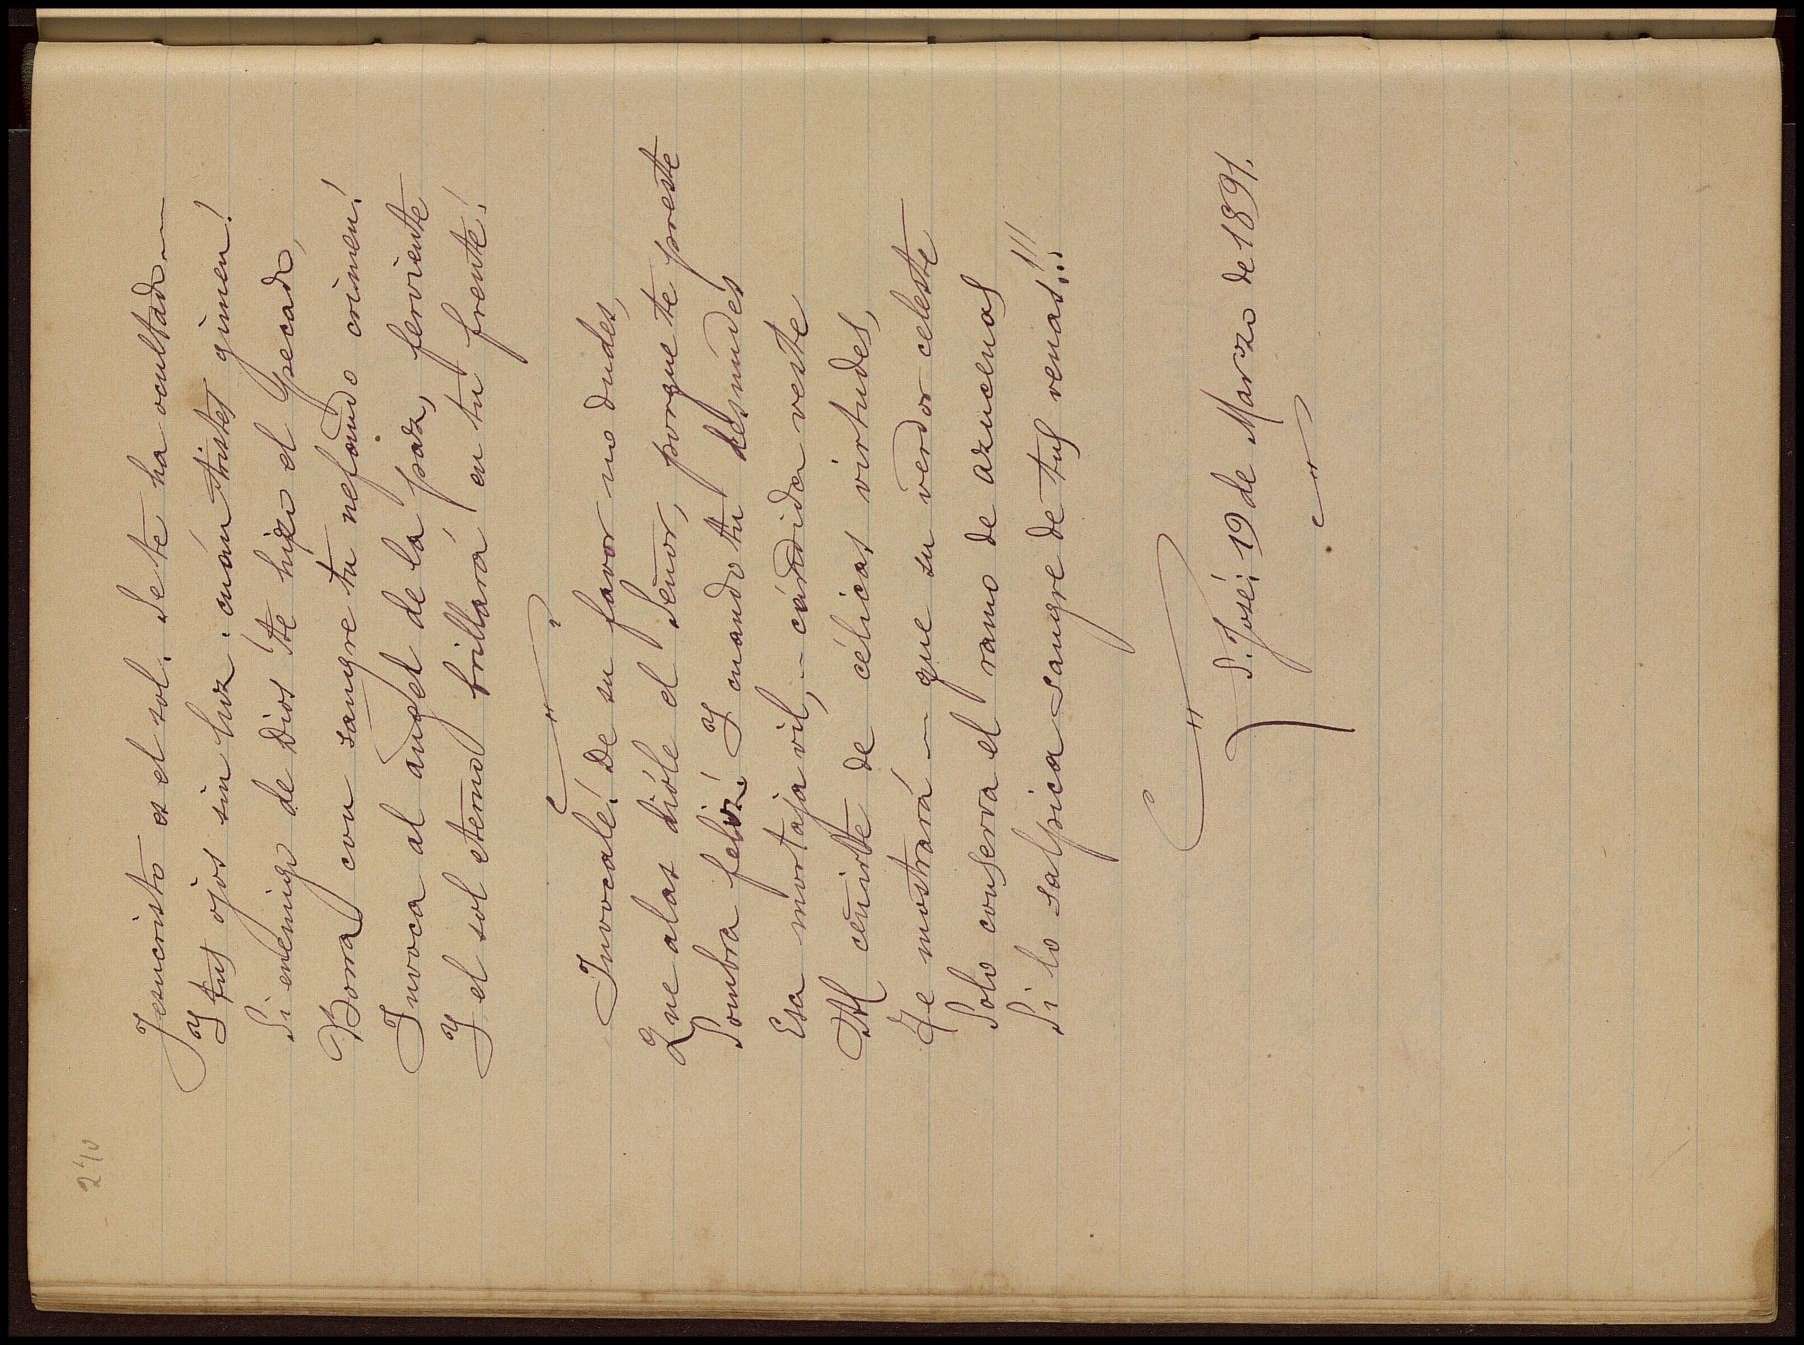 240
Jesucristo es el sol. Se te ha ocultado
Y tus ojos sin luz cuán tristes gimen!
Si enemigo de Dios te hizo el pecado,
Borra con sangre tu nefando crimen!
Invoca al angel de la paz, ferviente
Y el sol eterno brillará en tu frente!
Invócale! De su favor no dudes,
Que alas dióle el Señor, porque te preste
Sombra feliz! Y cuando tu desnudes
Esa mortaja vil, — cándida veste
Al ceñirte de célicas virtudes,
Te mostrará — que su verdor celeste
Solo conserva el ramo de azucenas
Si lo salpica sangre de tus venas!!!
S. José: 19 de Marzo de 1891.